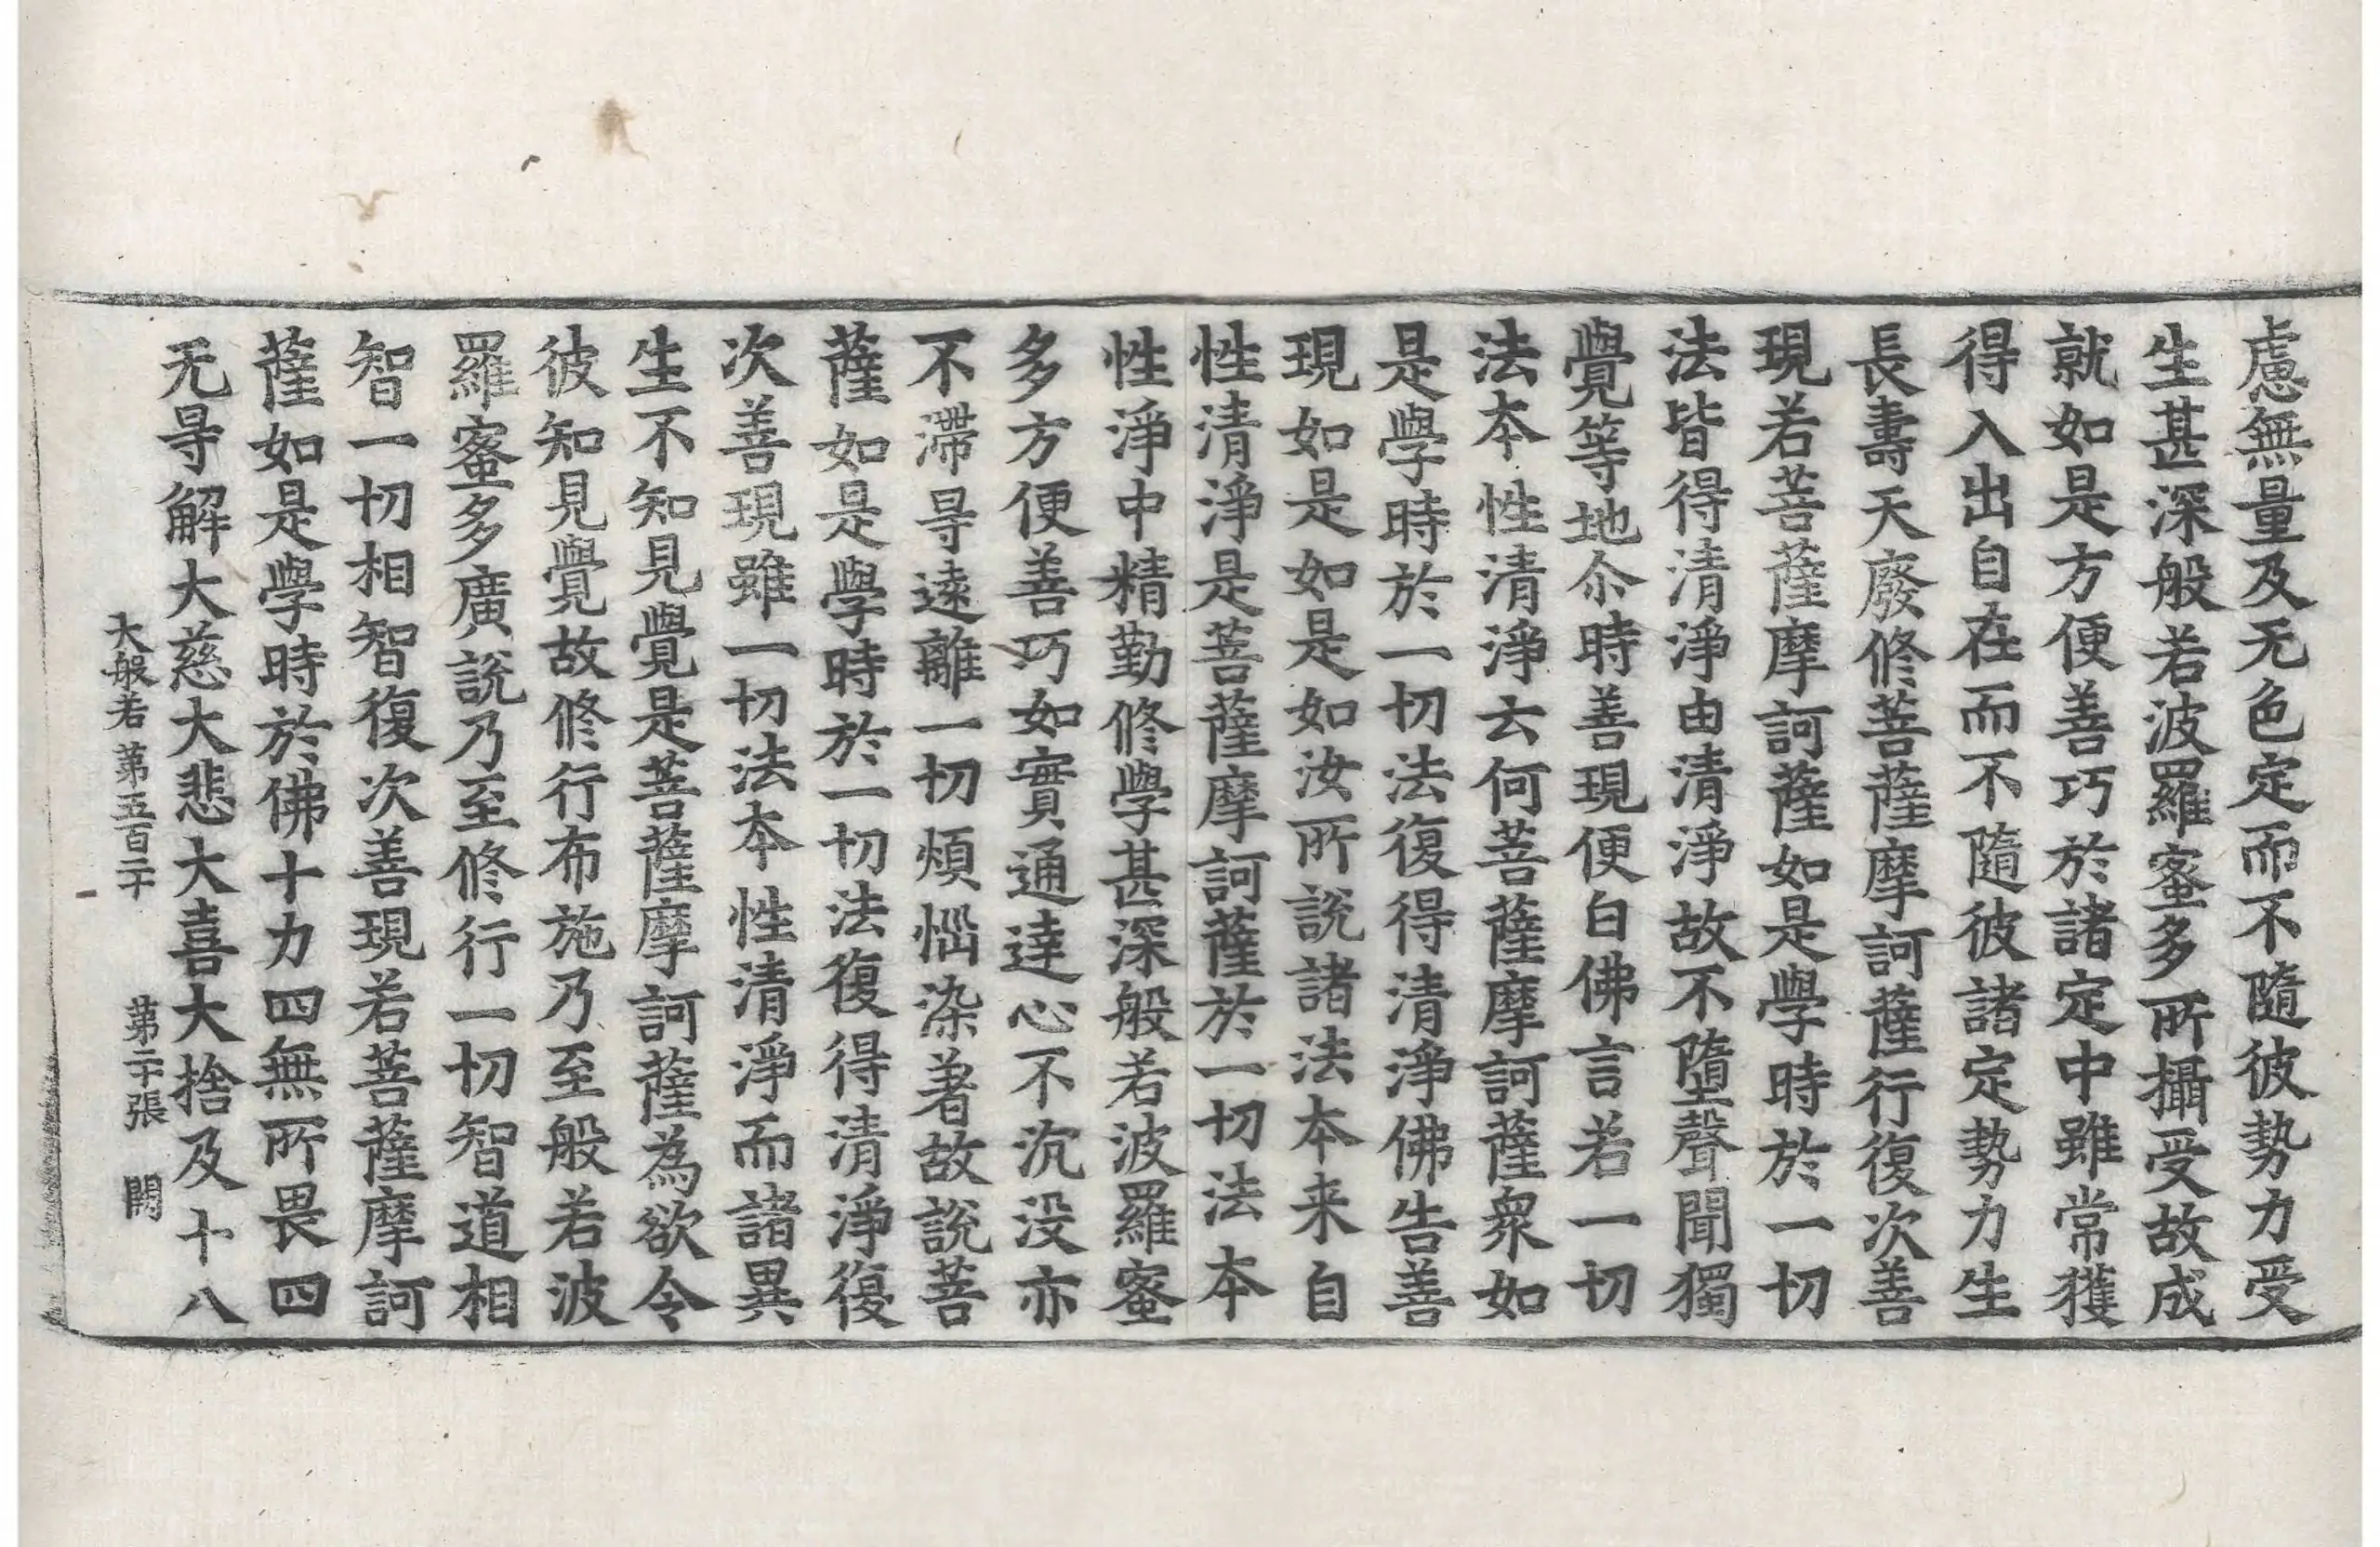 慮無量及无色定而不隨彼勢力受
生甚深般若波羅蜜多所攝受故成
就如是方便善巧於諸定中雖常獲
得入出自在而不隨彼諸定勢力生
長壽天廢修菩薩摩訶薩行復次善
現若菩薩摩訶薩如是學時於一切
法皆得清淨由清淨故不墮聲聞獨
覺等地尒時善現便白佛言若一切
法本性清淨云何菩薩摩訶薩衆如
是學時於一切法復得清淨佛告善
現如是如是如汝所說諸法本来自
性清淨是菩薩摩訶薩於一切法本
性淨中精勤修學甚深般若波羅蜜
多方便善巧如實通達心不沉没亦
不滯㝵遠離一切煩惱染著故說菩
薩如是學時於一切法復得清淨復
次善現雖一切法本性清淨而諸異
生不知見覺是菩薩摩訶薩為欲令
彼知見覺故修行布施乃至般若波
羅蜜多廣說乃至修行一切智道相
智一切相智復次善現若菩薩摩訶
薩如是學時於佛十力四無所畏四
无㝵解大慈大悲大喜大捨及十八
大般若 第五百二十 第二十張 闕